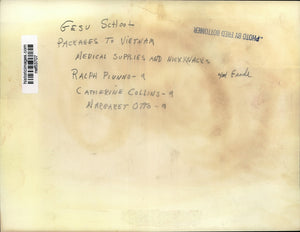 GESU SCHOOL
PACKAGES TO VIETNAM
MEDICAL SUPPLIES AND NICKNACKS
RALPH PIUNNO-9
CATHERINE COLLINS-9
MARGARET OTTO-9
PHOTO BY FRED BOTTOMER
historicimages.com